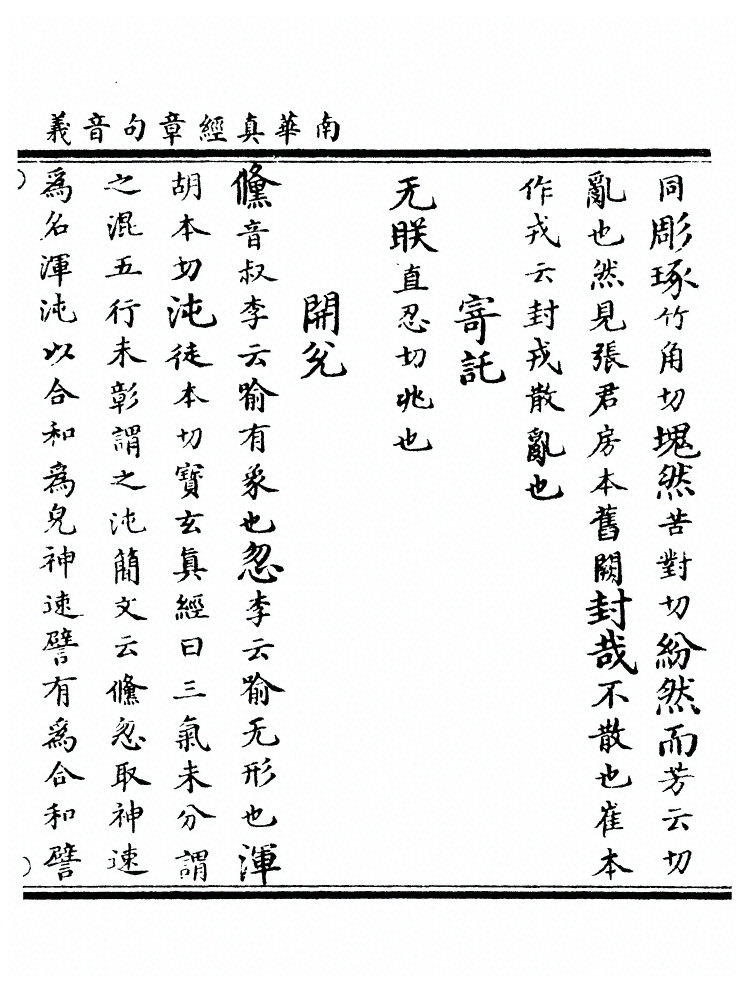 南華真經章句音義
同彫琢竹角切塊然苦對切紛然而芳云切
亂也然見張君房本舊闕封哉不散也崔本
作戎云封戎散亂也
寄託
无眹直忍切兆也
開兊
儵音叔李云喻有象也忽李云喻无形也渾
胡本切沌徒本切寶玄真經曰三氣未分謂
之混五行未彰謂之沌簡文云儵忽取神速
爲名渾沌以合和爲皃神速譬有爲合和譬